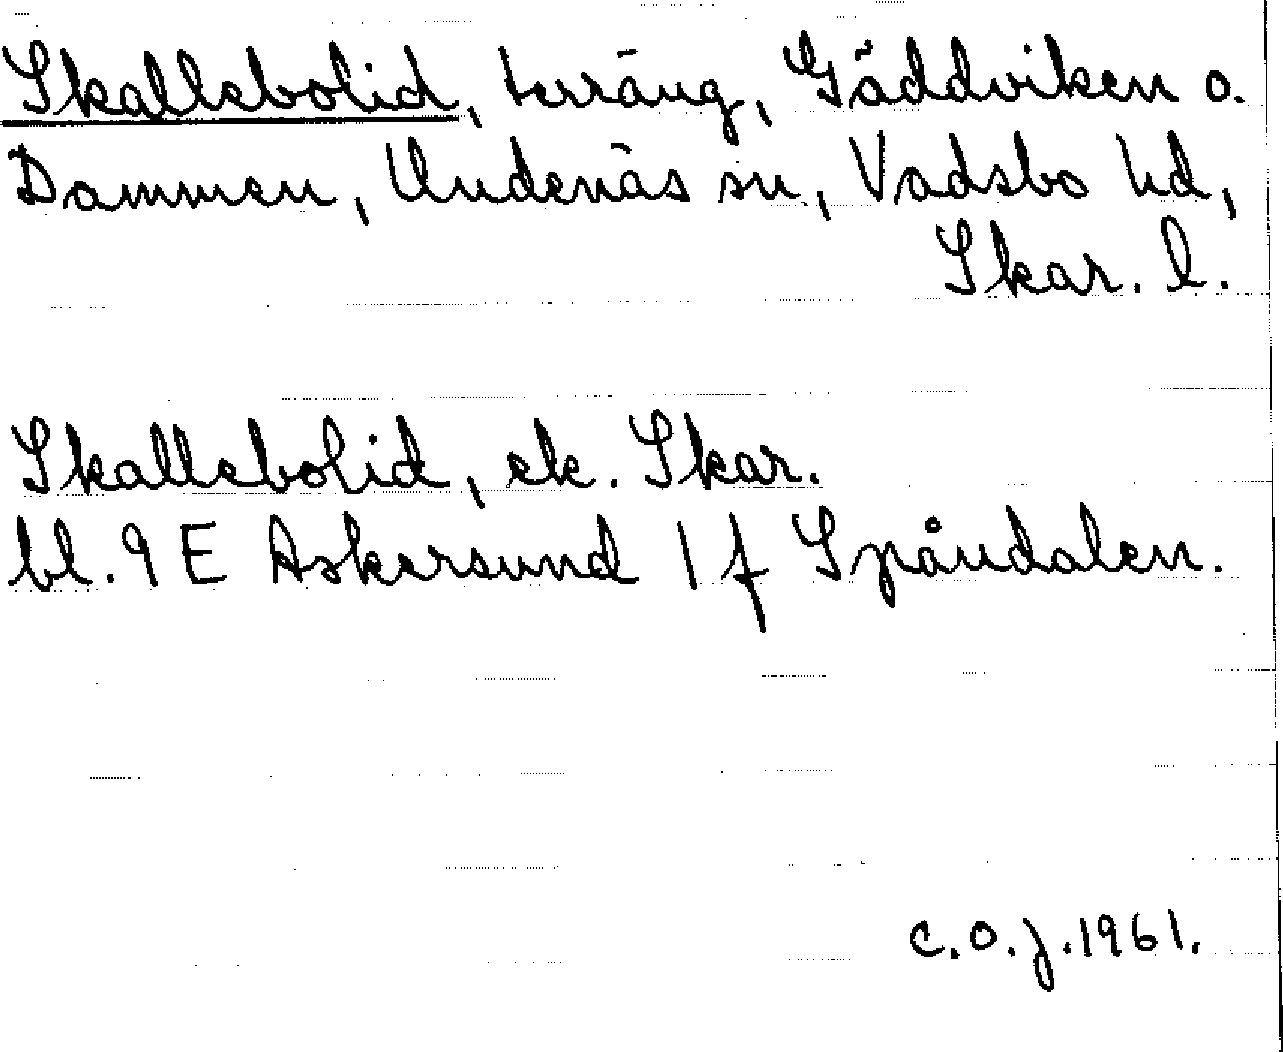 Skallebolid, terräng, Gäddviken o.
Dammen, Undenäs sn, Vadsbo hd,
Skar. l.
Skallebolid, ek. Skar.
bl. 9 E Askersund 1 f Spåndalen.
C.O.J. 1961.